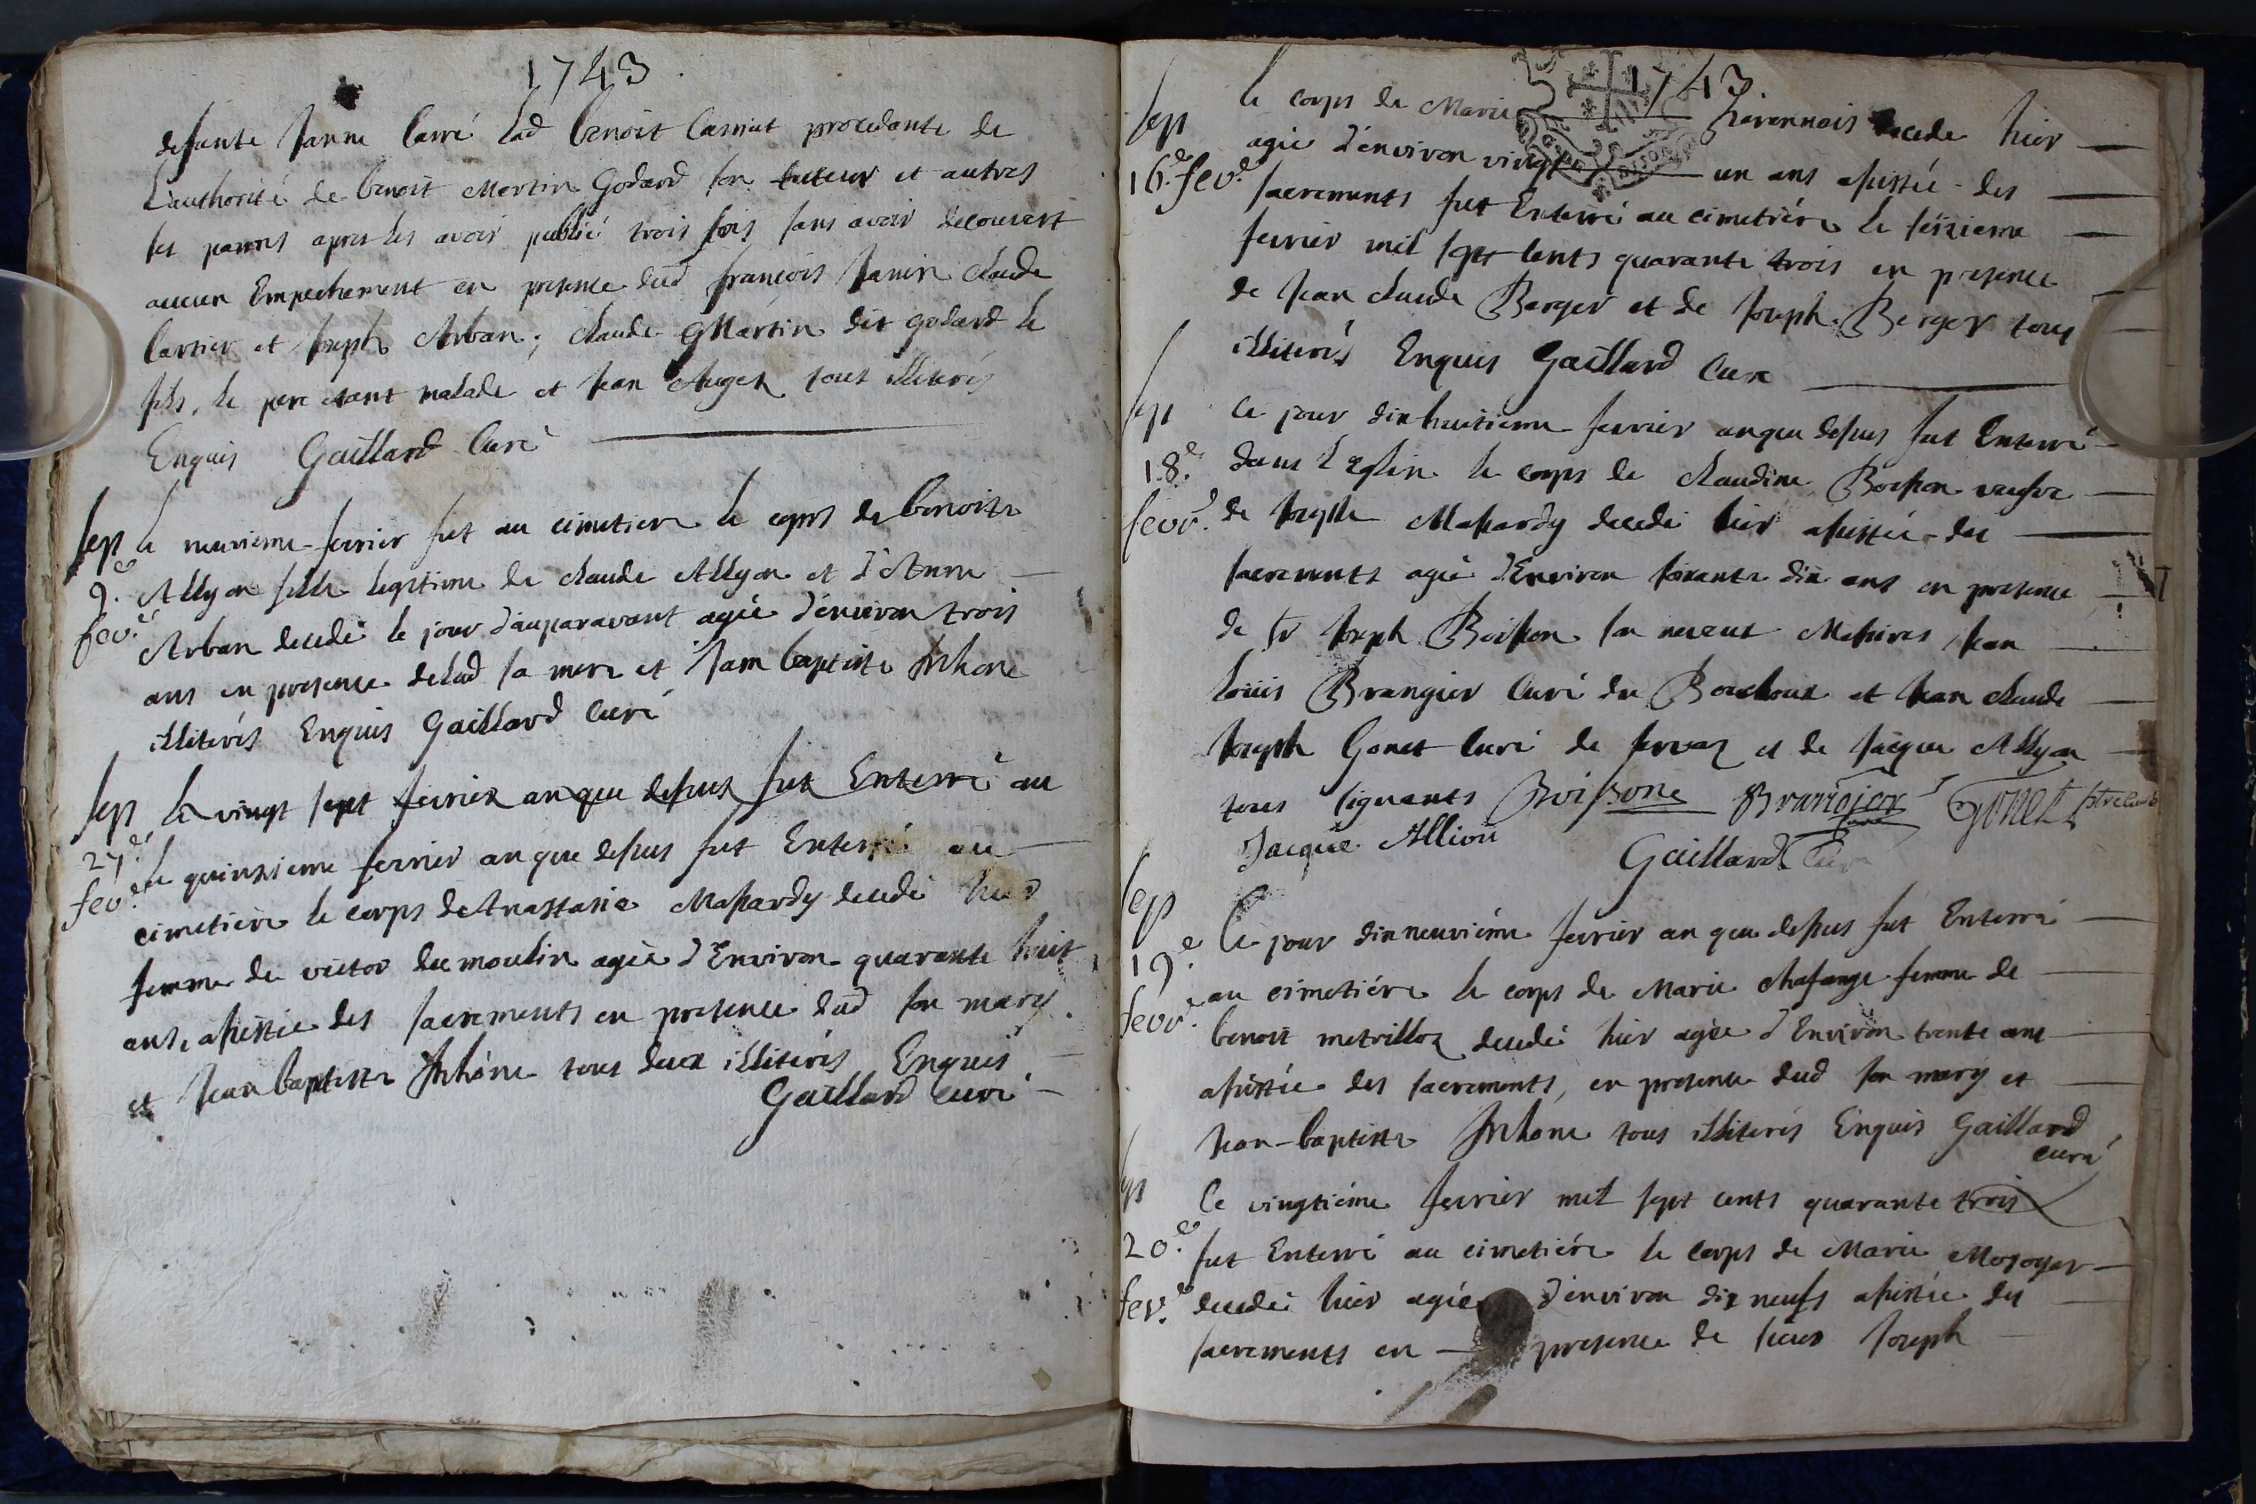 1743
defunte Janne Carré Lad benoit Carriat procedante de
L'authorité de benoit Martin Godard son tuteur et autres
ses parens apres les avoir publié trois fois sans avoir decouvert
aucun Empechement en presence dud françois Janin Claude
Cartier et Joseph Arban; Claude Martin dit godard le
fils, le pere etant malade et Jean Auger tous illiterés
Enquis Gaillard Curé
sep le neuvieme fevrier fut au cimetiere le corps de benoite
9.e Allyon fille legitime de Claude Allyon et d'Anne
fev.r Arban decedé le jour d'auparavant agée d'environ trois
ans en presence delad sa mere et Jean baptiste
illiterés Enquis Gaillard Curé
sep le vingt sept fevrier an que dessus fut Enterré au
27.e le quinzieme fevrier an que dessus fut Enterré au
fev.r cimetiere le corps de Anastasie Massardy decedé hier
femme de victor dumoulin agée d'Environ quarante huit
ans, assistée des sacrements en presence dud son mary
et Jean baptiste tous deux illiterés Enquis
Gaillard curé
1743
sep le corps de Marie decede hier
16.e fev.r agée d'environ vingt un ans assistée des
sacrements fut Enterré au cimetiére le seizieme
fevrier mil sept cents quarante trois en presence
de Jean claude Berger et de Joseph Berger tous
illiterés Enquis Gaillard Cure
sep Ce jour dixhuitieme fevrier an que dessus fut Enterré
18.e dans L'Eglise le corps de Claudine Boisson veufve
fevr. de Joseph Massardy decedé hier assistée des
sacrements agée d'Environ soixante dix ans en presence
de sr Joseph Boisson son neveut Messires Jean
Louis Brangier Curé du Bouchoux et Jean Claude
Joseph Gonet Curé de et de Jacque Allyon
tous signants Boissone Brangier Gonet ptre curé
Jacque Allion Gaillard Curé
sep Ce jour dixneuviéme fevrier an que dessus fut Enterré
19.e au cimetiére le corps de Marie femme de
fevr. benoit metrilloz decedé hier agée d'Environ trente ans
assistée des sacrements, en presence dud son mary et
Jean-baptiste tous illiterés Enquis Gaillard
curé
sep Ce vingtiéme fevrier mil sept cents quarante trois
20.e fut Enterré au cimetiére le corps de Marie
fev.r decedé hier agée d'environ dix neufs assistée des
sacrements en presence de sieur Joseph